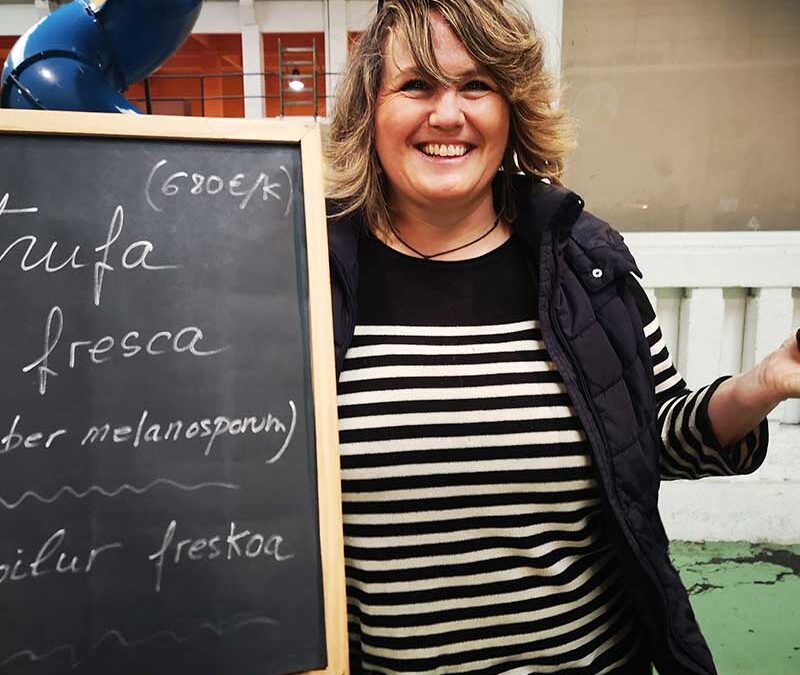 (680€/K)
trufa
fresca
ber melanosporum)
oilur freskoa